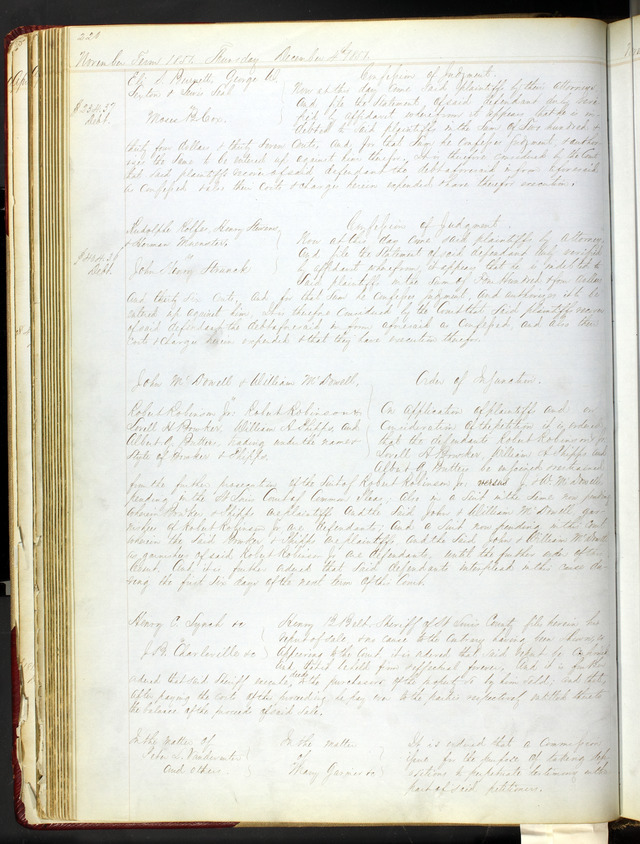 224
November Term 1851. Thursday December 4th 1851.
Eli S. Burnell, George W.
Sexton & Lewis Seal
Confession of Judgment.
Now at this day come said Plaintiffs by their Attorney
And file the Statement of said defendant duly veri-
fied by affidavit wherefrom it appears that he is in-
debted to said plaintiffs in the Sum of Two hundred &
$234.37
Debt.
Moses B. Cox.
thirty four dollars & thirty seven Cents. And, for that Sum he confesses judgment, & author-
izes the same to be entered up against him therefor. It is therefore considered by the Court
that said plaintiffs recover of said defendant the debt aforesaid in form aforesaid
so confessed and also their costs & charges herein expended & have therefor execution.
Rudolphe Henry
& Herman
Confession of Judgment.
Now, at this day come said plaintiffs by Attorney
And file the Statement of said defendant duly verified
by affidavit wherefrom, it appears that he is indebted to
Said plaintiffs in the Sum of Four hundred & four dollars
Debt.
John Henry
And thirty six Cents, And for that Sum he confesses judgment, and authorizes it to be
entered up against him, It is therefore Considered by the Court that Said plaintiffs recover
of said defendant the debt aforesaid in form aforesaid so confessed, and also their
costs & charges herein expended & that they have execution therefor.
John McDowell & William McDowell,
Order of Injunction.
Robert Robinson Jr. Robert Robinson
Lovell H. Bowker William H. Phipps and
Albert G. Butler, trading under the name &
Style of Bowker & Phipps.
On application of plaintiffs and on
Consideration of the petition it is ordered
that the defendants Robert Robinson Jr
Lovell H. Bowker, William H. Phipps and
Albert G. Butler be enjoined & restrained
from the further prosecuting of the Suit of Robert Robinson Jr. versus J. & Wm McDowell
pending in the St Louis Court of Common Pleas; Also in a Suit in the Same now pending
wherein Bowker & Phipps are plaintiffs And the Said John & William McDowell gar-
nishees of Robert Robinson Jr are defendants; And a Suit now pending in this Court
wherein the Said Bowker & Phipps are plaintiffs, and the Said John & William McDowell
as garnishees of said Robert Robinson Jr are defendants, until the further order of this
Court. And it is further ordered that said defendants interplead in this cause du-
ring the first six days of the next term of this Court.
Henry C. Lynch &c
J. B. Charleville &c
Henry B. Belt, Sheriff of St Louis County files herein his
report of sale, & no cause to the Contrary having been shown or
appearing to the Court it is ordered that said report be confirmed
And stand valid firm & effectual forever, And it is fur-
ther ordered that said Sheriff execute deeds to the purchasers of the property so by him sold; and that,
after paying the costs of this proceeding he pay over to the parties respectively entitled thereto
the balance of the proceeds of said sale.
In the matter of
Peter L. Vandeventer
And others.
In the matter
of
Mary &c
It is ordered that a Commission
issue for the purpose of taking dep-
ositions to perpetuate testimony on the
part of said petitioners.